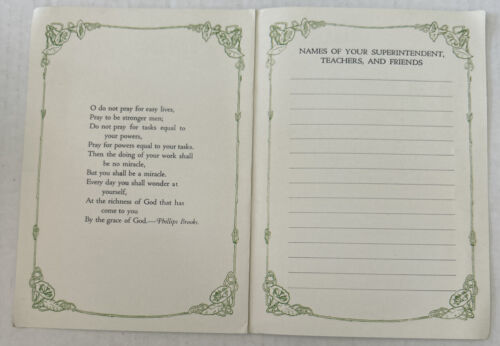 O do not pray for easy lives,
Pray to be stronger men;
Do not pray for tasks equal to
your powers,
Pray for powers equal to your tasks.
Then the doing of your work shall
be no miracle,
But you shall be a miracle.
Every day you shall wonder at
yourself,
At the richness of God that has
come to you
By the grace of God.—Phillips Brooks.
NAMES OF YOUR SUPERINTENDENT,
TEACHERS, AND FRIENDS